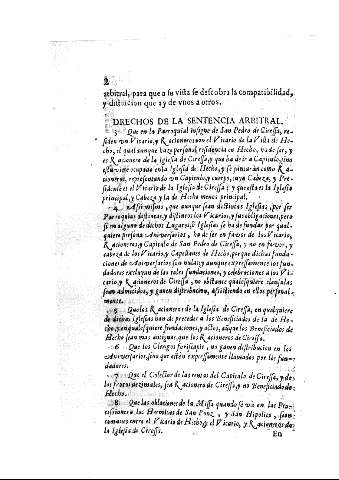 2
arbitral, para que a su vista se descubra la compatibilidad,
y distincion que ay de vnos a otros.
DRECHOS DE LA SENTENCIA ARBITRAL.
3 Que en la Parroquial insigne de San Pedro de Ciressa, re-
siden vn Vicario, y Racioneros con el Vicario de la Villa de He-
cho, el qual aunque haze personal residencia en Hecho, ha de ser, y
es Racionero de la Iglesia de Ciressa, y que ha de ir a Capitulo, sino
estuviere ocupado en la Iglesia de Hecho, y se juntarán como Ra-
cioneros, representando vn Capitulo, y cuerpo, cuya Cabeza, y Pre-
sidente es el Vicario de la Iglesia de Ciressa; y que esta es la Iglesia
principal, y Cabeza, y la de Hecho menos principal.
4 Assimismo, que aunque sean distintas Iglesias, por ser
Parroquias distintas, y distintos los Vicarios, y sus obligaciones, pero
si en alguno de dichos Lugares, ò Iglesias se ha de fundar por qual-
quiere persona Aniversarios, ha de ser en favor de los Vicario,
Racioneros, y Capitulo de San Pedro de Ciressa, y no en favor, y
cabeza de los Vicario, y Capellanes de Hecho, porque dichas funda-
ciones de Aniversarios son nulas, y aunque expressamente los fun-
dadores excluyan de las tales fundaciones, y celebraciones a los Vi-
cario, y Racioneros de Ciressa, no obstante qualesquiere clausulas
sean admitidos, y ganen distribucion, assistiendo en ellos personal-
mente.
5 Que los Racioneros de la Iglesia de Ciressa, en qualquiere
de dichas Iglesias han de preceder a los Beneficiados de la de He-
cho, en qualesquiere fundaciones, y actos, aunque los Beneficiados de
Hecho sean mas antiguos, que los Racioneros de Ciressa.
6 Que los Clerigos forasteros, no ganen distribucion en los
Aniversarios, sino que estèn expressamente llamados por los fun-
dadores.
7 Que el Collector de las rentas del Capitulo de Ciressa, y de
los frutos dezimales, sea Racionero de Ciressa, y no Beneficiado de
Hecho.
8 Que las oblaciones de la Missa quando se và en las Pro-
cessiones a las Hermitas de San Ponz, y San Hipolito, sean
comunes entre el Vicario de Hecho, y el Vicario, y Racioneros de
la Iglesia de Ciressa.
En